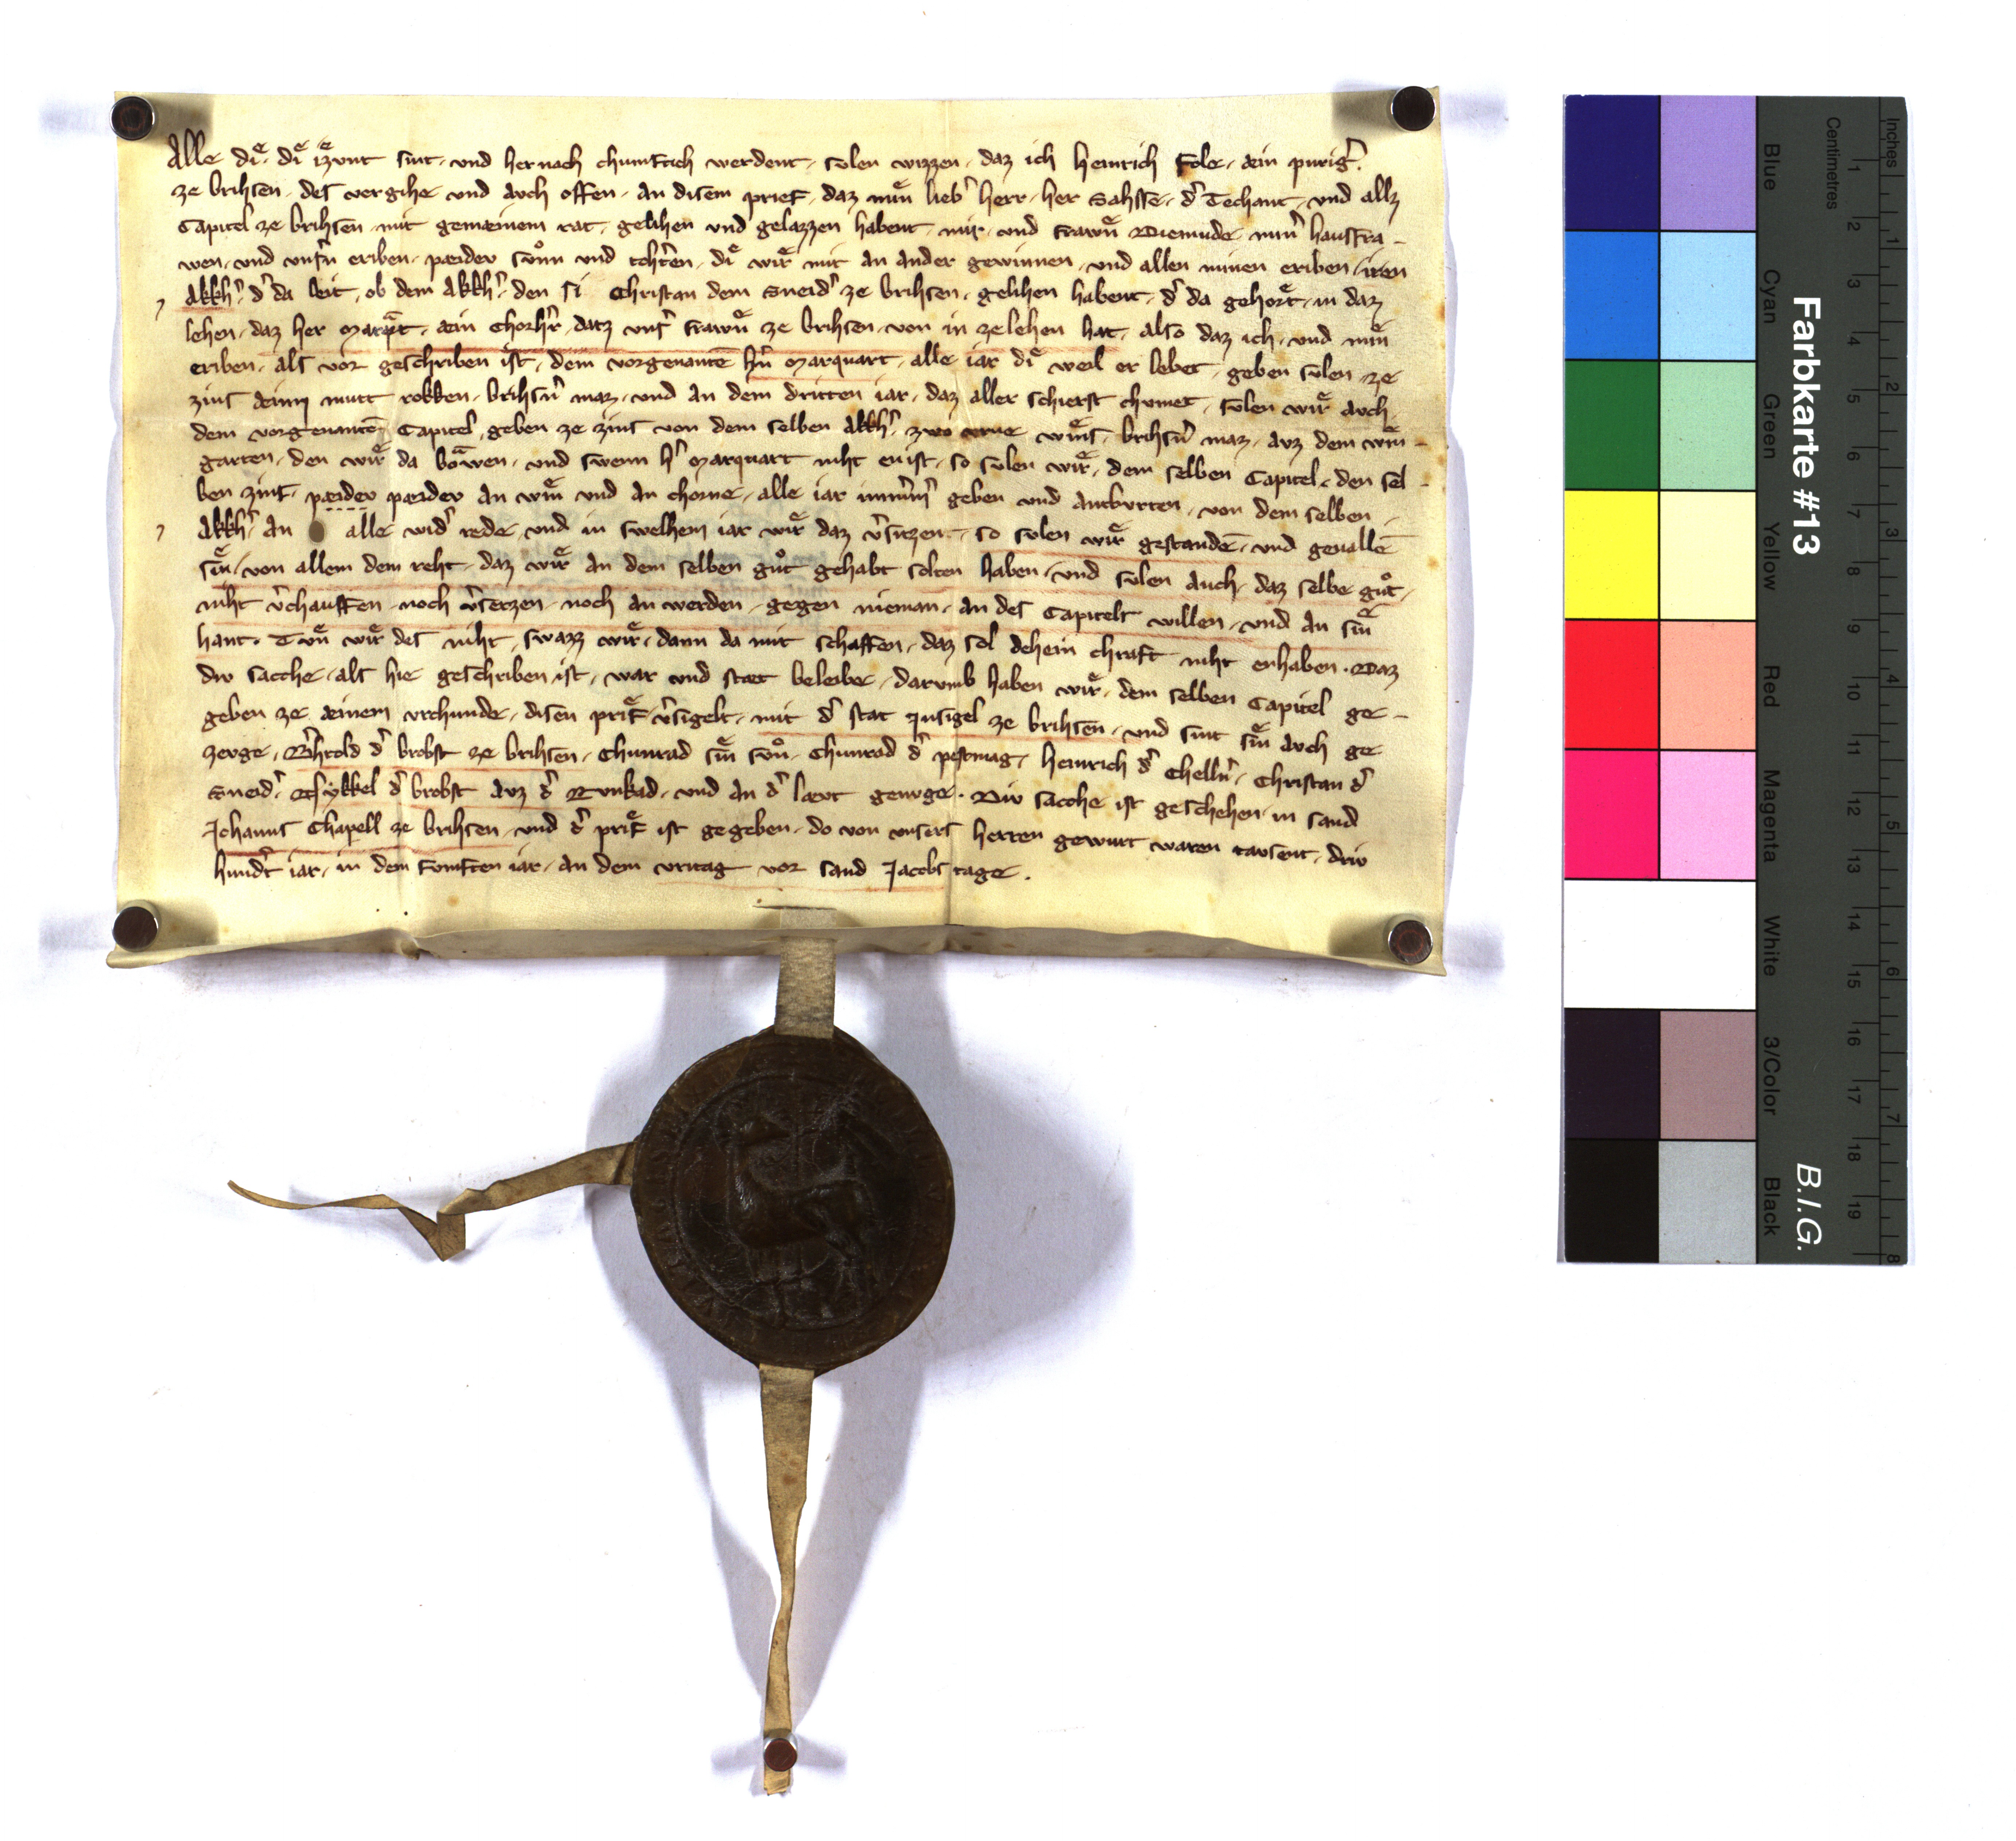 Alle diͤ, diͤ iͤzunt sint, und hernach chumftich werdent, sulen wizzen, daz ich Heinrich Fole, æin purig̉.
ze Brihsen, des vergihe und avch offen, an disem prief, daz miͤn lieb̉ herr, her Sahsse, d̉ Techant, und allz
Capitel ze Brihsen, mit gemæinem rat, gelihen und gelazzen habent, mir, und frawnͤ Diemude, min̉ hausfra-
wen, und unsr̉n eriben, pæidev suͦn und tohtẻn, diͤ wiͤr mit an ander gewinnen, und allen minen eriben, iren
Akkh̉, d̉ da leit, ob dem Akkh̉, den si Christan dem Sneid̉ ze Brihsen, gelihen habent, d̉ da gehorͤt, in daz
lehen, daz her Marqͣrt, æin Chorh̉r, datz uns̉ frawnͤ ze Brihsen, von in ze lehen hat, also daz ich, und miͤn
eriben, als vor geschriben ist, dem vorgenantē h̉n Marquart, alle iar diͤ weil er lebet, geben sulen, ze
zins æinn mutt rokken, Brihsn̉ maz, und an dem dritten iar, daz aller schierst chumet, sulen wiͤr avch
dem vorgenantē Capitel, geben ze zins von dem selben Akkh̉, zwo urne wiͤns, Brihsn̉ maz, avz dem win-
garten, den wiͤr da bowen, und swenn h̉ Marquart niht enist, so sulen wiͤr, dem selben Capitel, den sel-
ben zins, pæidev pæidev an wiͤn und an chorne, alle iar imm̉m̉ geben und antwrten, von dem selben
Akkh̉ an alle wid̉ rede, und in swelhem iar wiͤr daz v̉sitzen, so sulen wiͤr gestandē, und geuallē
siͤn, von allem dem reht, daz wiͤr an dem selben guͦt gehabt solten haben, und sulen auch, daz selbe guͦt,
niht v̉chauffen, noch v̉setzen, noch an werden, gegen nieman, an des Capitels willen, und an siͤn
hant. Tuͤn wiͤr des niht, swazz wiͤr, dann da mit schaffen, daz sol dehein chraft niht enhaben. Daz
div sacche, als hie geschriben ist, war und stæt beleibe, darumb haben wiͤr, dem selben Capitel ge-
geben ze æinem urchunde, disen priͤf v̉sigelt, mit d̉ stat Insigel ze Brihsen, und sint siͤn avch ge
zevge, B̉htold d̉ brobst ze Brihsen, Chunrad siͤn suͦn, Chunrad d̉ pestmag, Heinrich d̉ Chelln̉, Christan d̉
Sneid̉, d̉ brobst avz d̉ Runkad, und an d̉ lævt genvge. Div sacche ist geschehen, in sand
Johanns Chapell ze Brihsen, und d̉ priͤf ist gegeben, do von unsers herren gewurt waren tavsent, driv
hund̉t iar, in dem funften iar, an dem vritag vor sand Jacobs tage.
Farbkarte #13
B.I.G.
Blue
Cyan
Green
Yellow
Red
Magenta
White
3/Color
Black
Centimetres
1 2 3 4 5 6 7 8 9 10 11 12 13 14 15 16 17 18 19
Inches
1 2 3 4 5 6 7 8